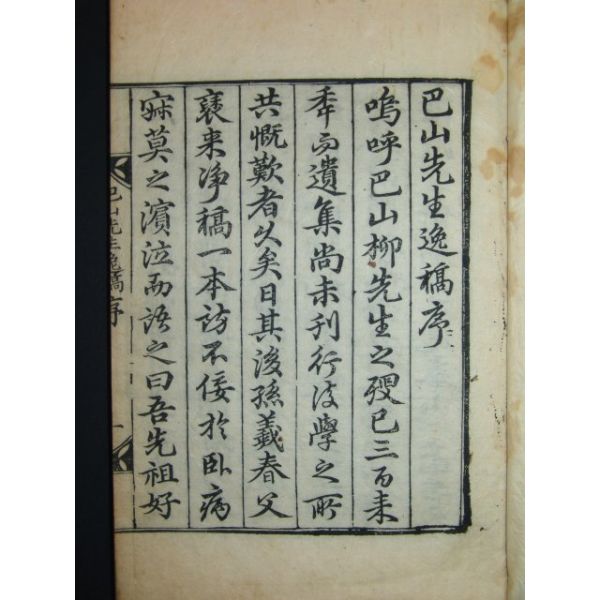 巴山先生逸稿序
嗚呼巴山柳先生之歿已三百来
秊而遺集尚未刊行後學之所
共慨歎者久矣日其後孫義春父
褎来净稿一本訪不佞於卧病
寂莫之濱泣而語之曰吾先祖好
巴山先生逸稿序
一